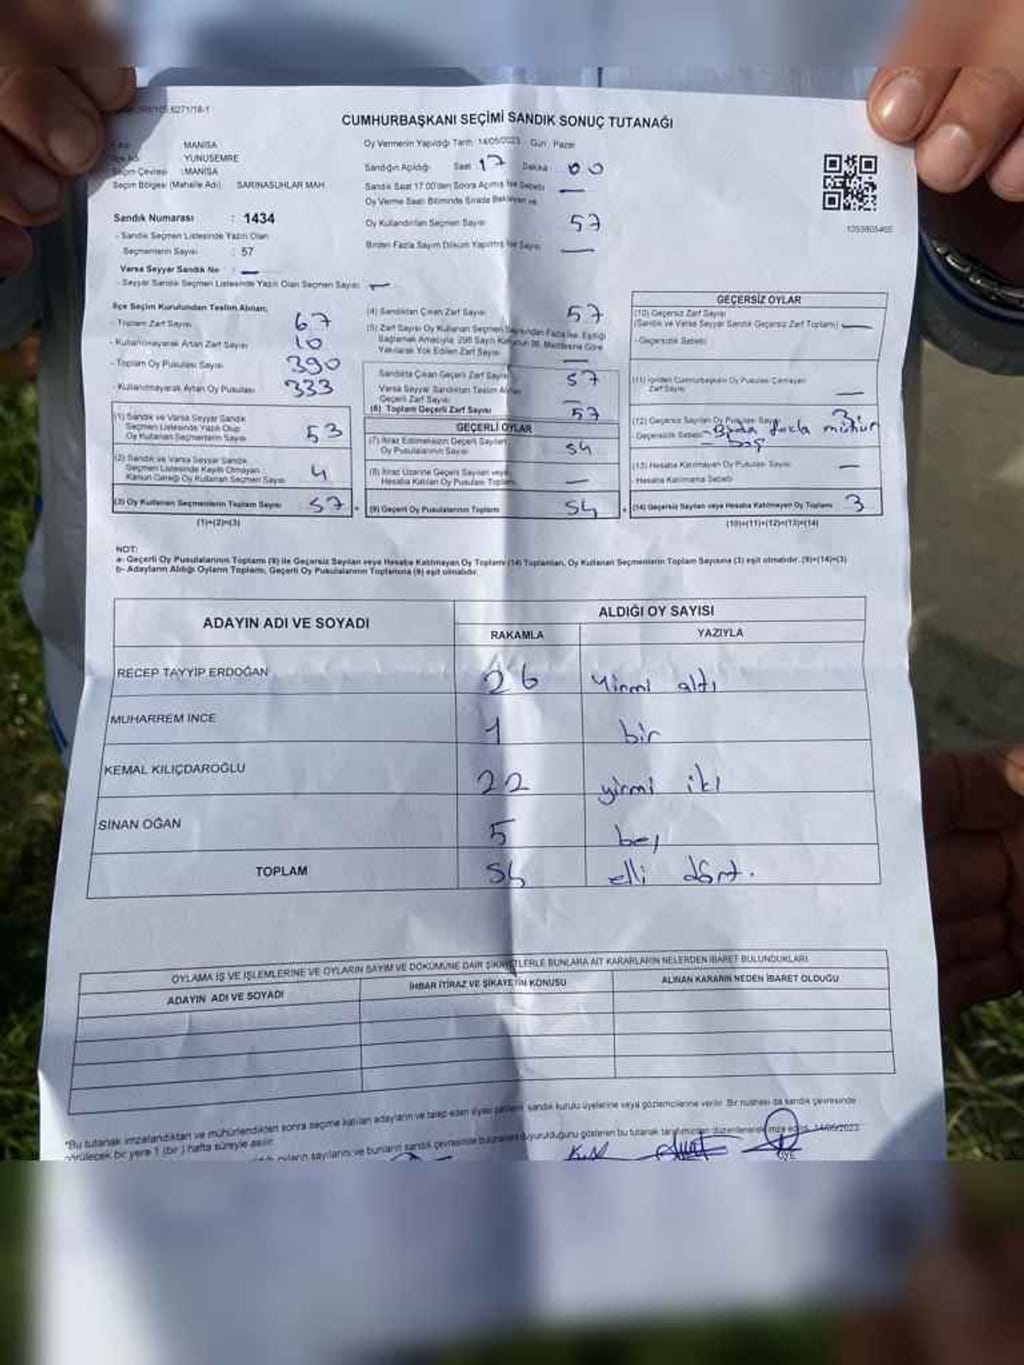 6271/18-1
CUMHURBAŞKANI SEÇİMİ SANDIK SONUÇ TUTANAĞI
MANİSA
İlçe Adı : YUNUSEMRE
Seçim Çevresi : MANİSA
Seçim Bölgesi (Mahalle Adı) SARINASUHLAR MAH.
Oy Vermenin Yapıldığı Tarih: 14/05/2023 Gün: Pazar
Sandığın Açıldığı Saat: 17 Dakika: 00
Sandık Saat 17.00'den Sonra Açılmış İse Sebebi —
Oy Verme Saati Bitiminde Sırada Bekleyen ve
Oy Kullandırılan Seçmen Sayısı 57
Birden Fazla Sayım Döküm Yapılmış İse Sayısı —
1053805465
Sandık Numarası : 1434
- Sandık Seçmen Listesinde Yazılı Olan
Seçmenlerin Sayısı : 57
Varsa Seyyar Sandık No : —
- Seyyar Sandık Seçmen Listesinde Yazılı Olan Seçmen Sayısı : —
İlçe Seçim Kurulundan Teslim Alınan;
- Toplam Zarf Sayısı 67
- Kullanılmayarak Artan Zarf Sayısı 10
- Toplam Oy Pusulası Sayısı 390
- Kullanılmayarak Artan Oy Pusulası 333
(1) Sandık ve Varsa Seyyar Sandık
Seçmen Listesinde Yazılı Olup
Oy Kullanan Seçmenlerin Sayısı 53
(2) Sandık ve Varsa Seyyar Sandık
Seçmen Listesinde Kayıtlı Olmayan
Kanun Gereği Oy Kullanan Seçmen Sayısı 4
(3) Oy Kullanan Seçmenlerin Toplam Sayısı 57
(1)+(2)=(3)
(4) Sandıktan Çıkan Zarf Sayısı 57
(5) Zarf Sayısı Oy Kullanan Seçmen Sayısından Fazla ise, Eşitliği
Sağlamak Amacıyla, 298 Sayılı Kanunun 98. Maddesine Göre
Yakılarak Yok Edilen Zarf Sayısı —
Sandıkta Çıkan Geçerli Zarf Sayısı 57
Varsa Seyyar Sandıktan Teslim Alınan
Geçerli Zarf Sayısı —
(6) Toplam Geçerli Zarf Sayısı 57
GEÇERLİ OYLAR
(7) İtiraz Edilmeksizin Geçerli Sayılan
Oy Pusulasının Sayısı 54
(8) İtiraz Üzerine Geçerli Sayılan veya
Hesaba Katılan Oy Pusulası Toplamı —
(9) Geçerli Oy Pusulalarının Toplamı 54
GEÇERSİZ OYLAR
(10) Geçersiz Zarf Sayısı
(Sandık ve Varsa Seyyar Sandık Geçersiz Zarf Toplamı) —
- Geçersizlik Sebebi:
(11) İçinden Cumhurbaşkanı Oy Pusulası Çıkmayan
Zarf Sayısı —
(12) Geçersiz Sayılan Oy Pusulası Sayısı 3
- Geçersizlik Sebebi: - Birden fazla mühür
- boş
(13) Hesaba Katılmayan Oy Pusulası Sayısı —
- Hesaba Katılmama Sebebi:
(14) Geçersiz Sayılan veya Hesaba Katılmayan Oy Toplamı 3
(10)+(11)+(12)+(13)=(14)
NOT:
a- Geçerli Oy Pusulalarının Toplamı (9) ile Geçersiz Sayılan veya Hesaba Katılmayan Oy Toplamı (14) Toplamları, Oy Kullanan Seçmenlerin Toplam Sayısına (3) eşit olmalıdır. (9)+(14)=(3)
b- Adayların Aldığı Oyların Toplamı, Geçerli Oy Pusulalarının Toplamına (9) eşit olmalıdır.
ADAYIN ADI VE SOYADI ALDIĞI OY SAYISI
RAKAMLA YAZIYLA
RECEP TAYYİP ERDOĞAN 26 Yirmi altı
MUHARREM İNCE 1 bir
KEMAL KILIÇDAROĞLU 22 yirmi iki
SİNAN OĞAN 5 beş
TOPLAM 54 elli dört.
OYLAMA İŞ VE İŞLEMLERİNE VE OYLARIN SAYIM VE DÖKÜMÜNE DAİR ŞİKAYETLERLE BUNLARA AİT KARARLARIN NELERDEN İBARET BULUNDUKLARI
ADAYIN ADI VE SOYADI İHBAR İTİRAZ VE ŞİKAYETİN KONUSU ALINAN KARARIN NEDEN İBARET OLDUĞU
"Bu tutanak imzalandıktan ve mühürlendikten sonra seçime katılan adayların ve talep eden siyasi partilerin sandık kurulu üyelerine veya gözlemcilerine verilir. Bir nüshası da sandık çevresinde
görülecek bir yere 1 (bir) hafta süreyle asılır.
oyların sayılarını ve bunların sandık çevresinde duyurulduğunu gösteren bu tutanak tarafımızdan düzenlenerek imza edildi. 14/05/2023
ÜYE